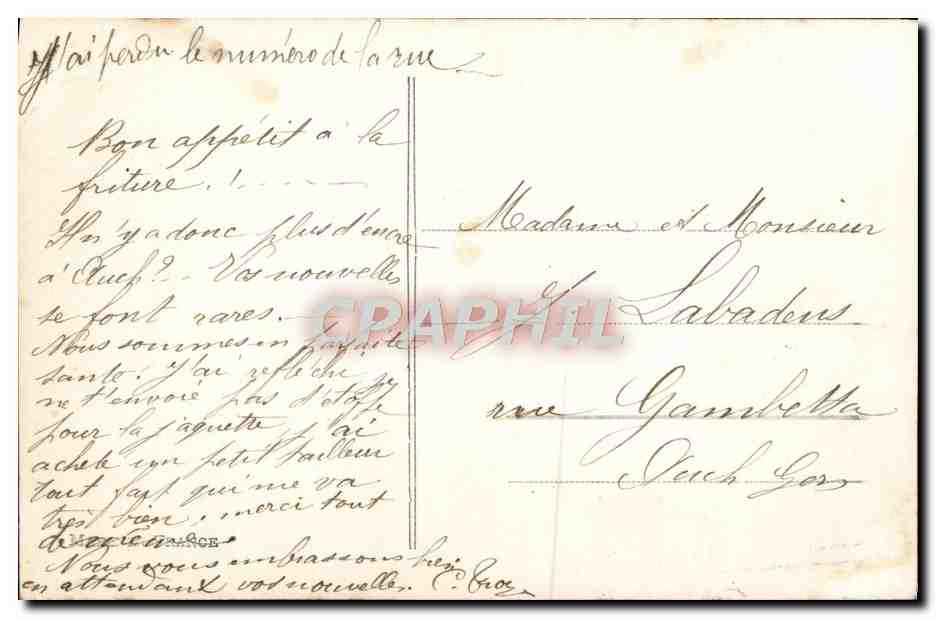 J'ai perdu le numéro de la rue
Bon appétit à la
friture !
Il n'y a donc plus d'encre
à Auch ? - Vos nouvelles
se font rares.
Nous sommes en parfaite
santé. J'ai refléchi, je
ne t'envoie pas d'étoffe
pour la jaquette, j'ai
acheté un petit tailleur
tout fait qui me va
très bien. merci tout
de
Nous vous embrassons bien
en attendant vos nouvelles.
Madame et Monsieur
Labadens
rue Gambetta
Auch Gers
CPAPHIL